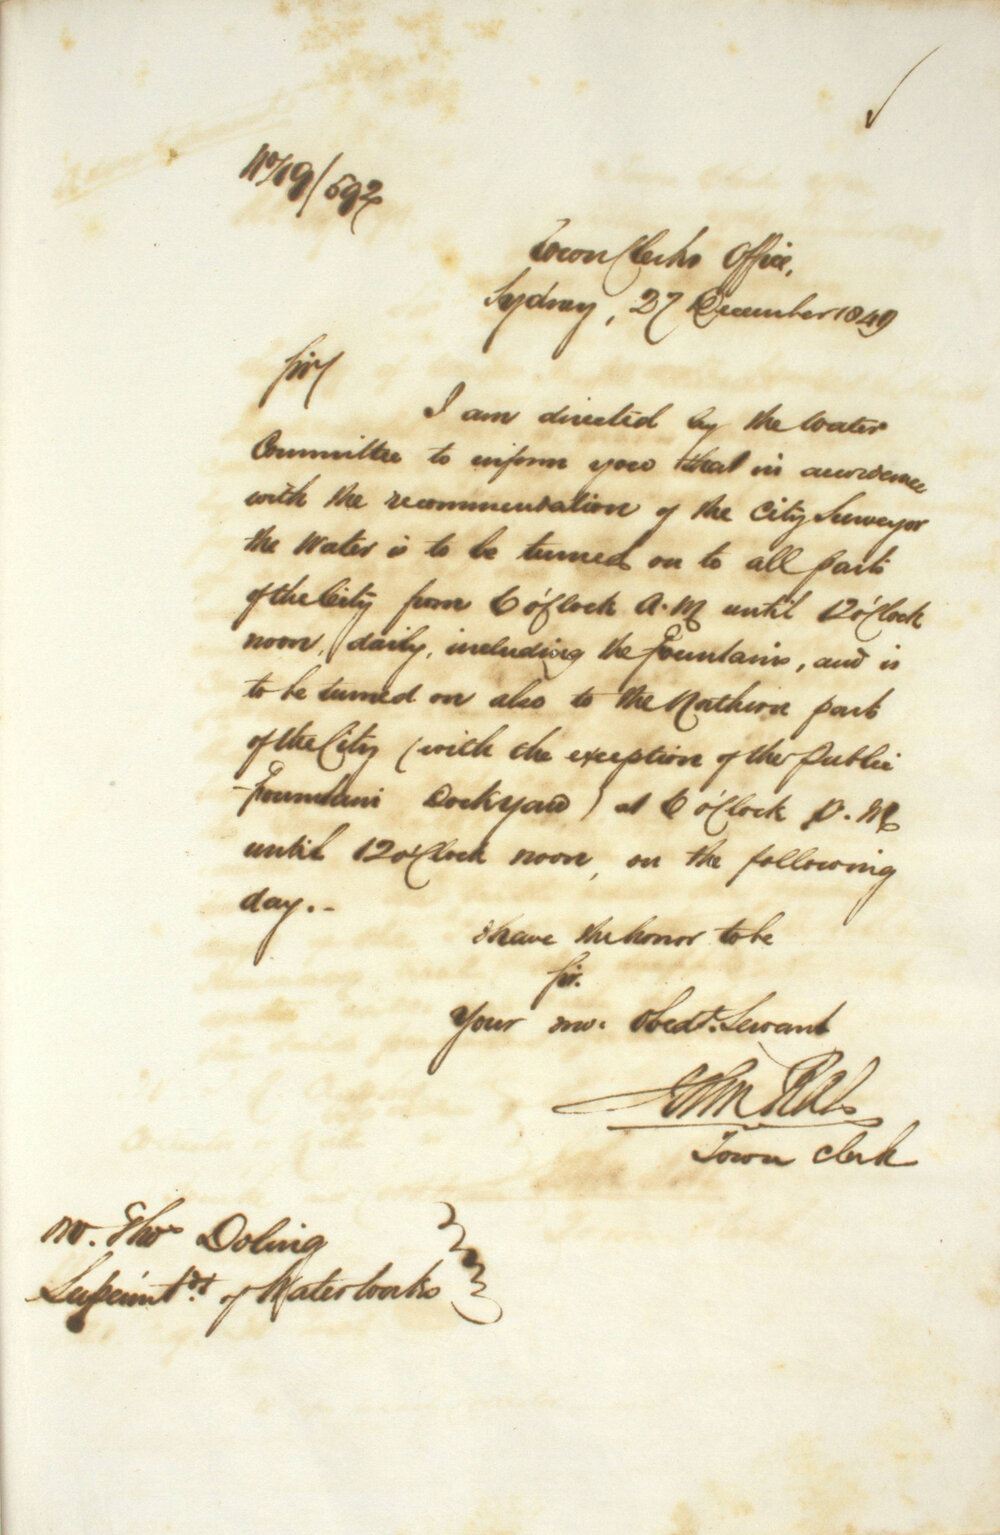 No 49/592
Town Clerks Office,
Sydney, 27 December 1849
Sir
I am directed by the Water
Committee to inform you that in accordance
with the recommendation of the City Surveyor
the Water is to be turned on to all parts
of the City from 6 o'Clock A.M until 12 o'Clock
noon, daily, including the Fountains, and is
to be turned on also to the Northern part
of the City (with the exception of the Public
Fountain Dockyard) at 6 o'Clock P.M
until 12 o'Clock noon, on the following
day.-
I have the honor to be
Sir.
Your mo. Obedt. Servant
John Rae
Town Clerk
Mr. Thos Doling
Superintdt. of Water Works